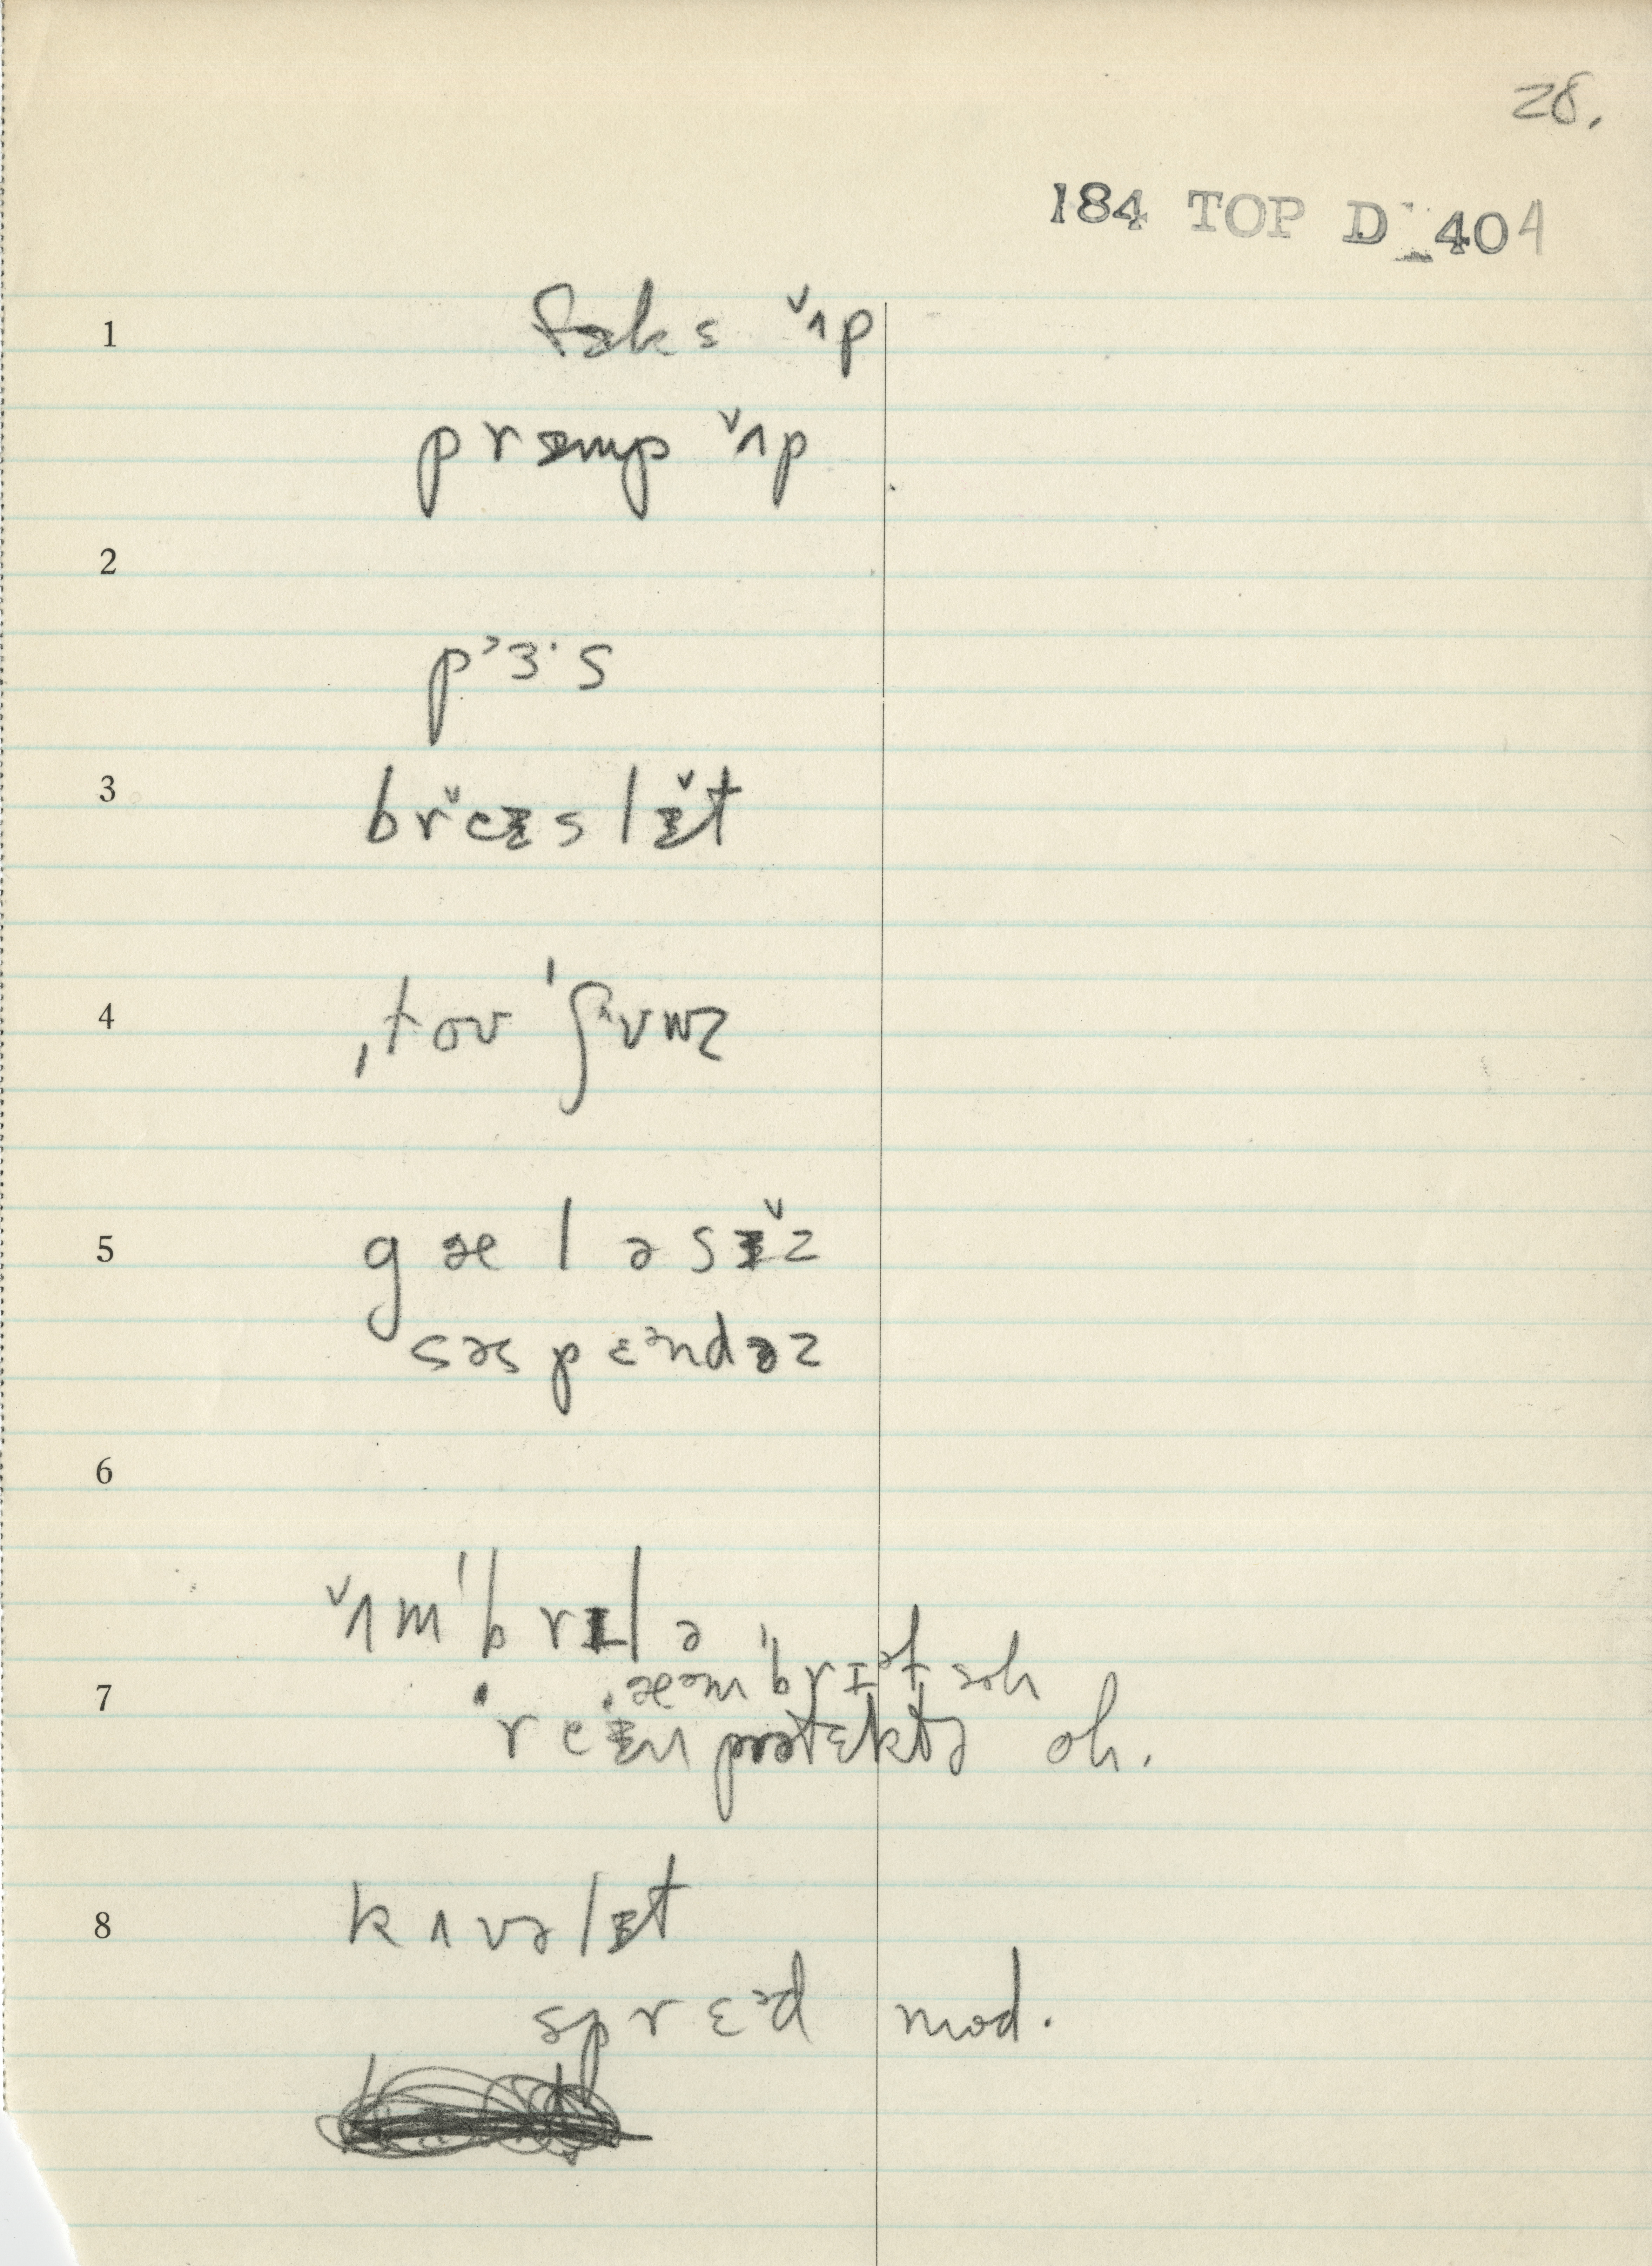 28.
184 TOP D 404
1 fɚks ʌ̌p
prɪmp ʌ̌p
2
pˀɜ·s
3 brě̌ɪslɪ̌t
4 ˌtoʊ ˈʃuʷz
5 gæləsɪ̌z
səspɛᵊndəz
6
ʌ̌mˈbrɪlə
ˌæᵊmˈbrɪᵊt soh
7 reɪn prətɛktə oh.
8 kʌvəlɪt
sprɛᵊd mod.